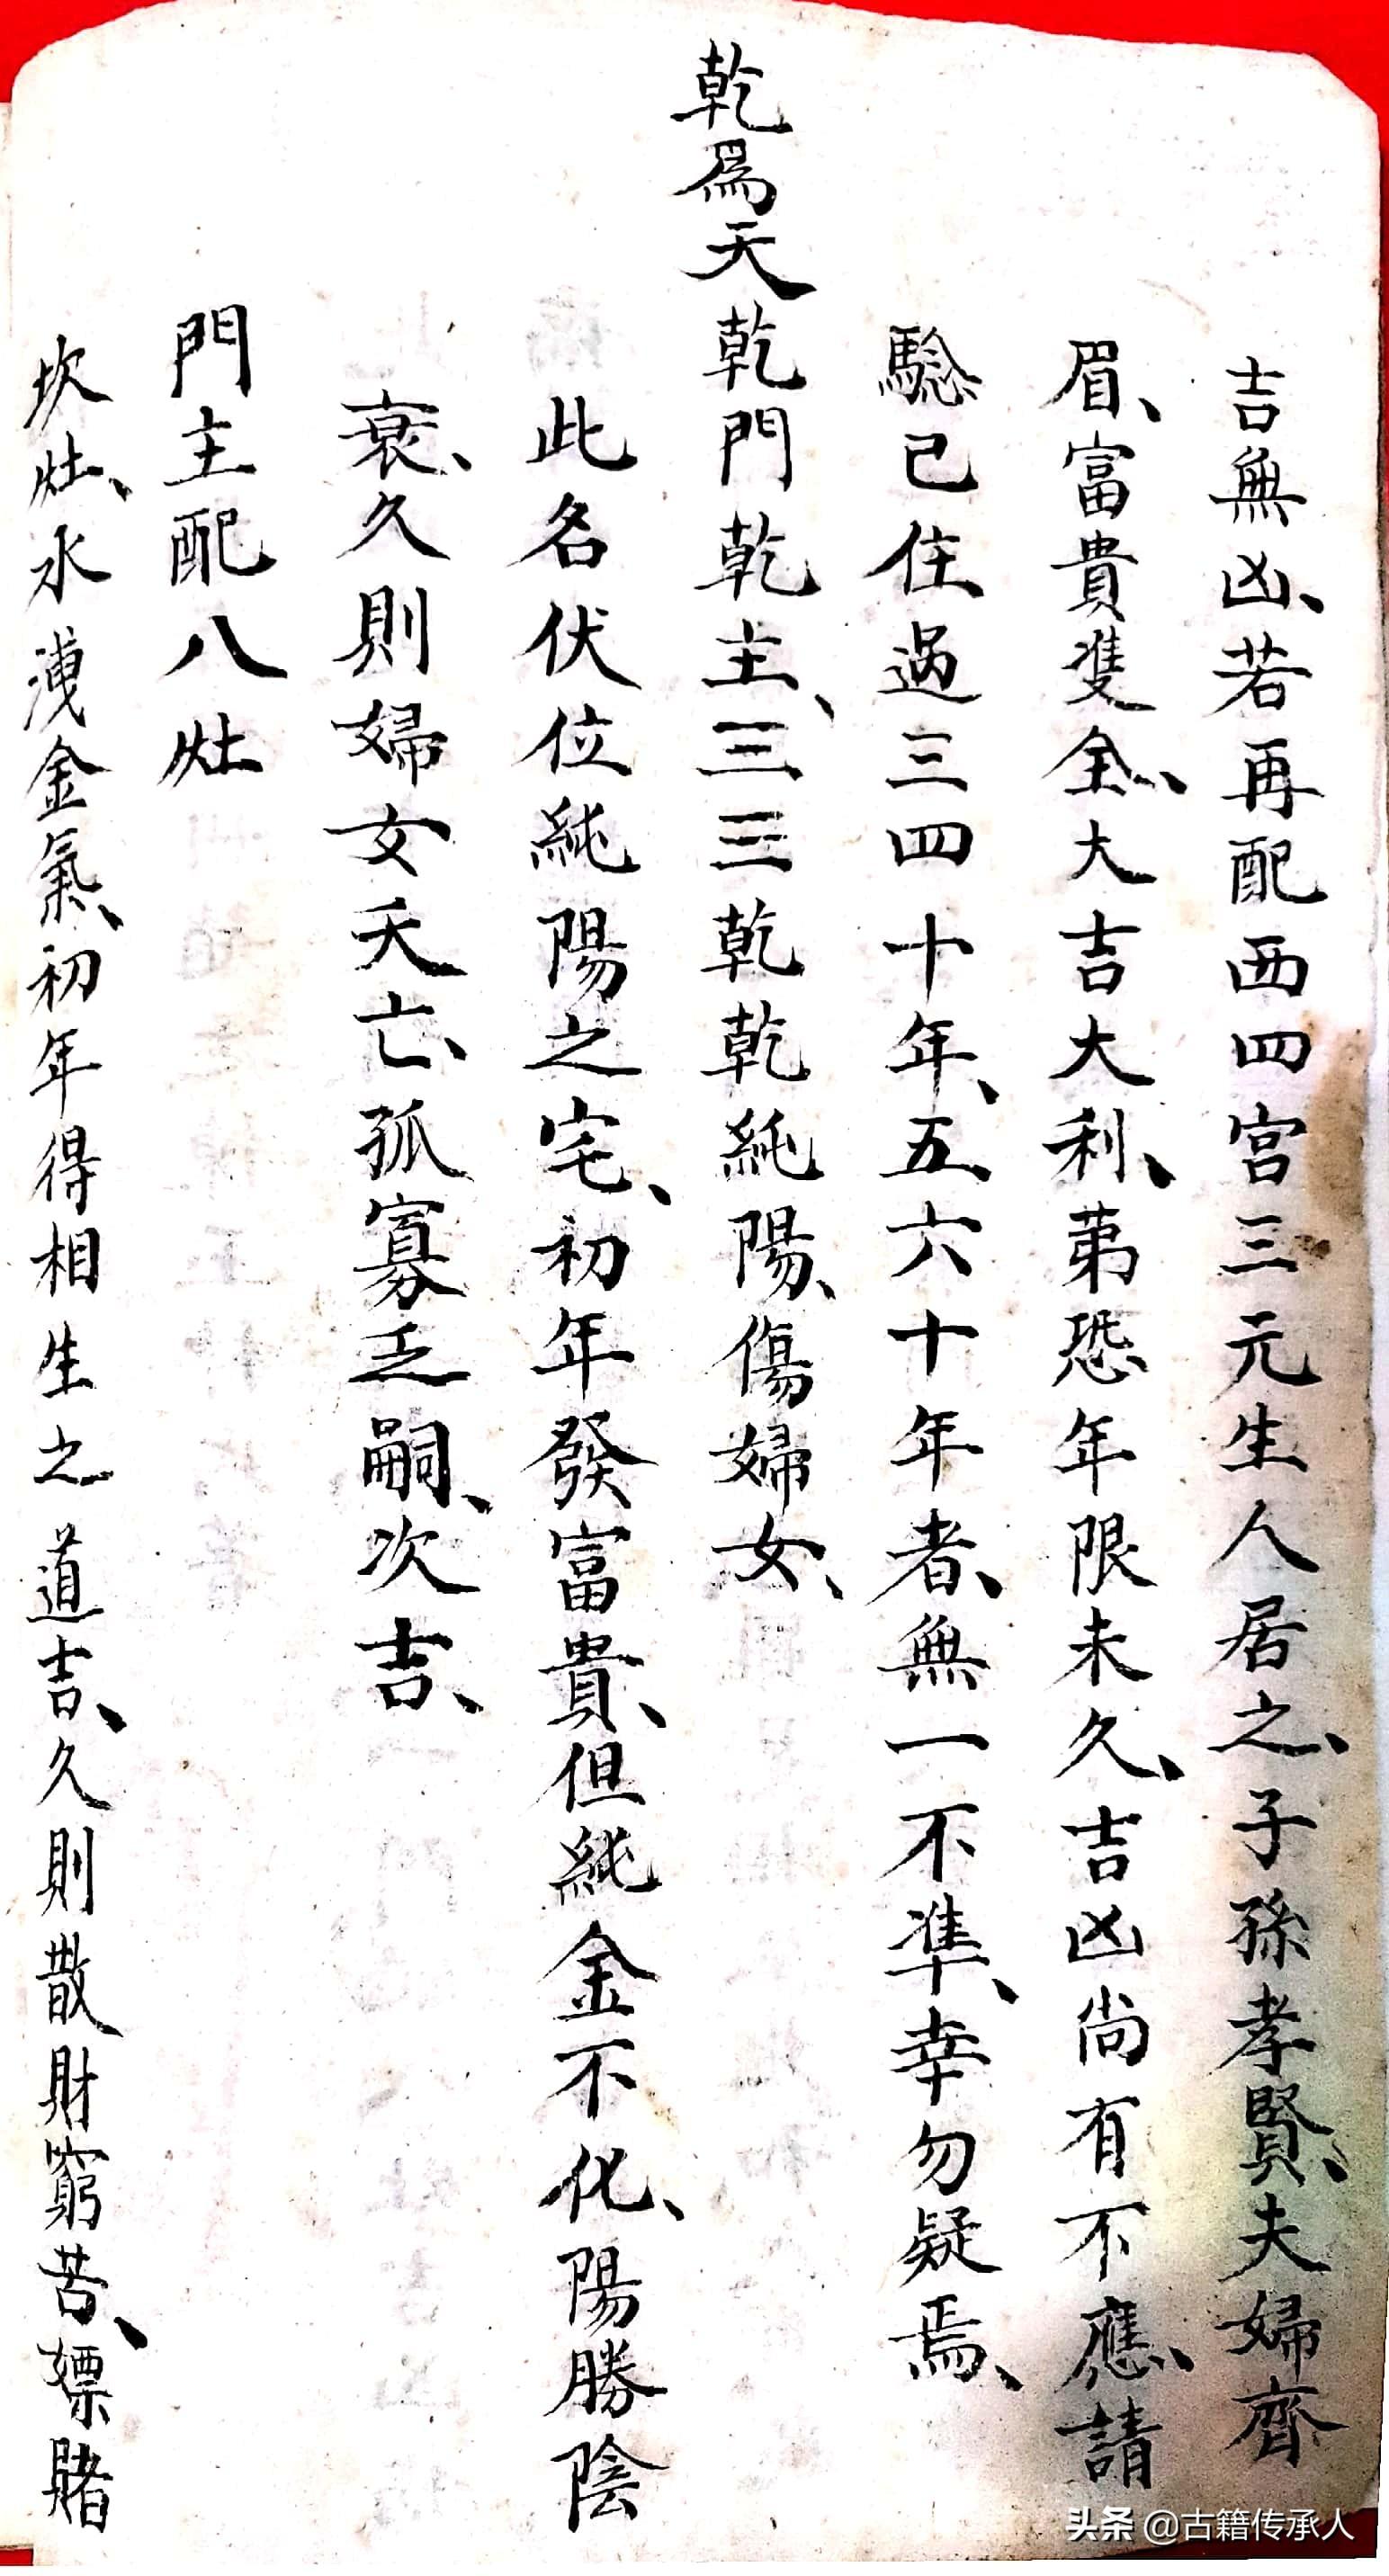 吉無凶、若再配西四宫三元生人居之、子孫孝賢、夫婦齊
眉、富貴雙全、大吉大利、苐恐年限未久、吉凶尚有不應、請
驗已住過三四十年、五六十年者、無一不準、幸勿疑焉、
乾爲天乾門乾主、三三乾乾純陽、傷婦女、
此名伏位純陽之宅、初年發富貴、但純金不化、陽勝陰
衰、久則婦女夭亡、孤寡乏嗣、次吉、
門主配八灶
坎灶、水洩金氣、初年得相生之道吉、久則散財窮苦、嫖賭
头条 @古籍传承人